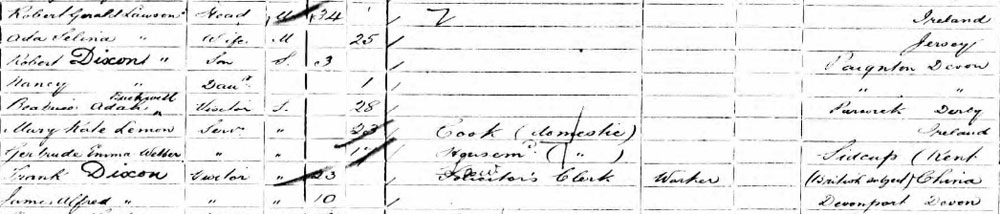 Robert Gerald Lawson Head M 34 Ireland
Ada Selina " Wife M 25 Jersey
Robert Dixon " Son S 3 Paignton Devon
Nancy " Daur 1 " "
Beatrice Adah Visitor S. 28 Parwick Derby
Mary Kate Lemon Serv " 23 Cook (domestic) Ireland
Gertrude Emma Webber " " Housemd ( " ) Sidcup (Kent
Frank Dixon Visitor " 23 Solicitor's Clerk Worker (British subject) China
James Alfred " " " 10 Devonport Devon